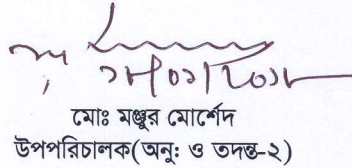 মোঃ মঞ্জুর মোর্শেদ
উপপরিচালক(অনু: ও তদন্ত-২)